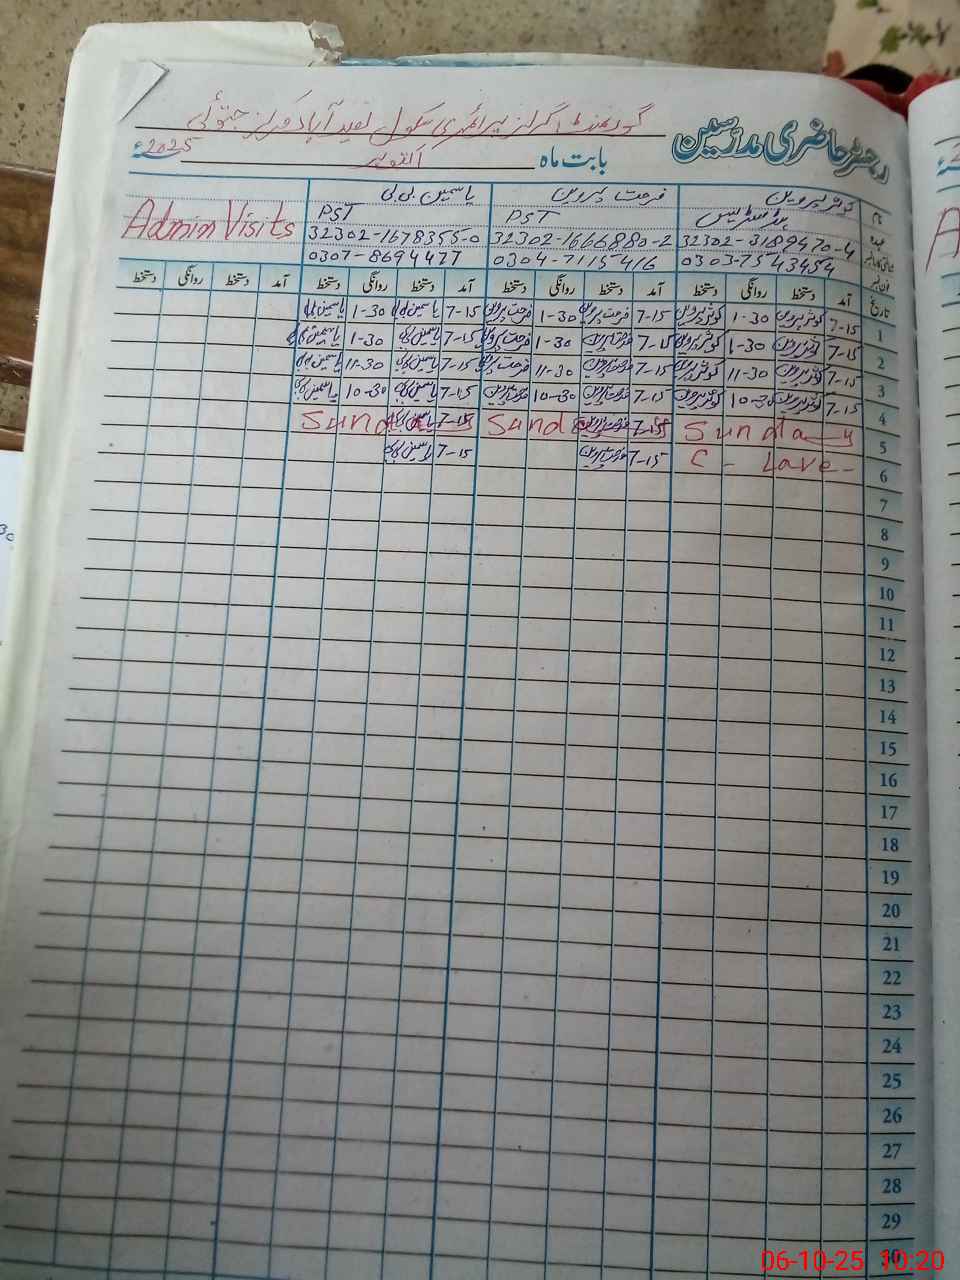 رجسٹر حاضری مدرسین
گورنمنٹ گرلز پرائمری سکول نوید آباد مرکز جتوئی
بابت ماہ اکتوبر 2025ء
نام کوثر پروین فرحت پروین یاسمین بی بی
عہدہ ہیڈ مسٹریس PST PST Admin Visits
شناختی کارڈ نمبر 32302-3189470-4 32302-1666880-2 32302-1678355-0
فون نمبر 0303-7543454 0304-7115416 0307-8694477
تاریخ آمد دستخط روانگی دستخط آمد دستخط روانگی دستخط آمد دستخط روانگی دستخط آمد دستخط روانگی دستخط
1 7-15 کوثر پروین 1-30 کوثر پروین 7-15 فرحت پروین 1-30 فرحت پروین 7-15 یاسمین بی بی 1-30 یاسمین بی بی
2 7-15 کوثر پروین 1-30 کوثر پروین 7-15 فرحت پروین 1-30 فرحت پروین 7-15 یاسمین بی بی 1-30 یاسمین بی بی
3 7-15 کوثر پروین 11-30 کوثر پروین 7-15 فرحت پروین 11-30 فرحت پروین 7-15 یاسمین بی بی 11-30 یاسمین بی بی
4 7-15 کوثر پروین 10-30 کوثر پروین 7-15 فرحت پروین 10-30 فرحت پروین 7-15 یاسمین بی بی 10-30 یاسمین بی بی
5 Sunday 7-15 فرحت پروین Sund 7-15 یاسمین بی بی Sund
6 C - Lave - 7-15 فرحت پروین 7-15 یاسمین بی بی
7
8
9
10
11
12
13
14
15
16
17
18
19
20
21
22
23
24
25
26
27
28
29
30
06-10-25 10:20